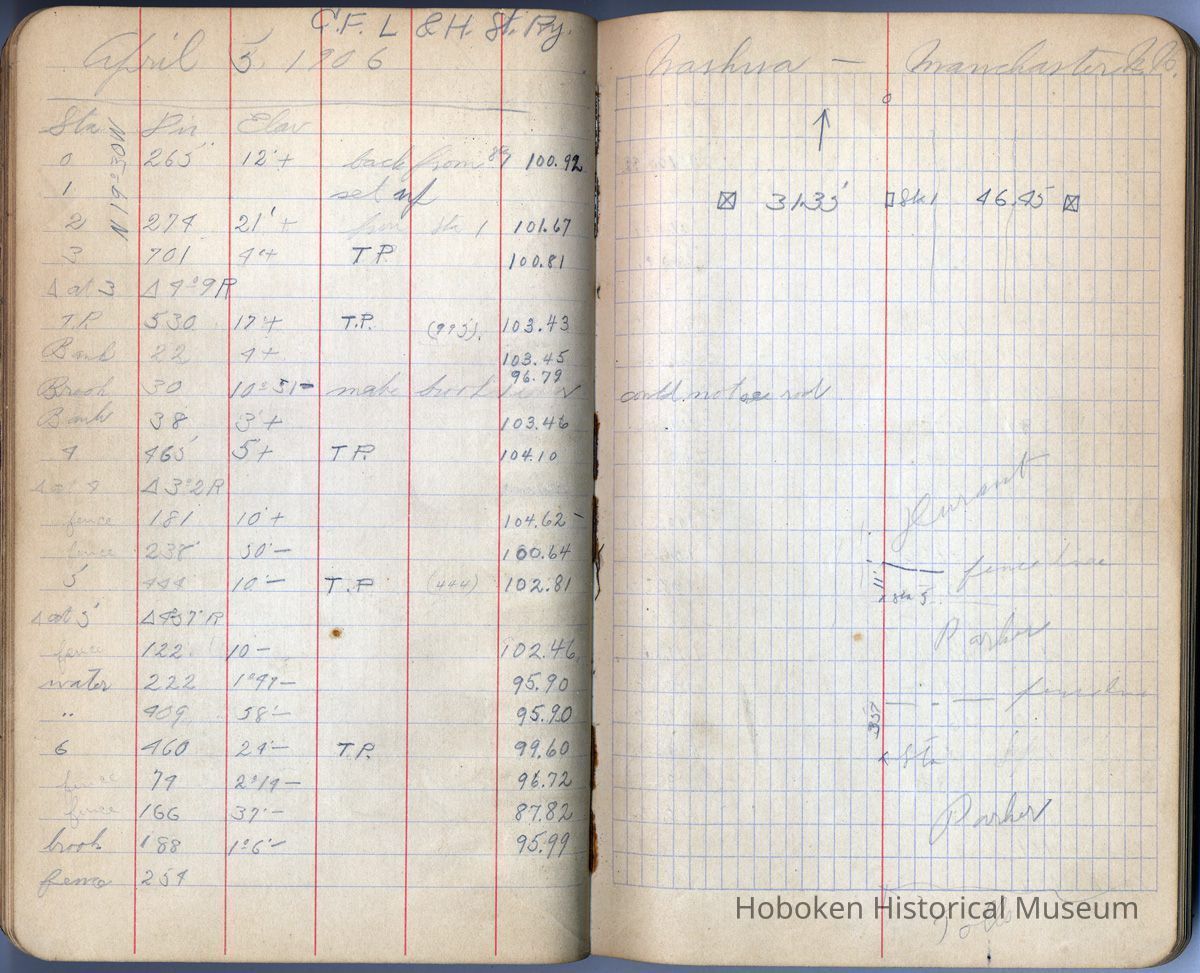 C.F. L & H. St. Ry.
April 5, 1906
Sta Dis Elev
N 19°30W
0 265 12'+ back from 100.92
1 set up
2 274 21'+ from Sta 1 101.67
3 701 4'+ T.P. 100.81
Δ at 3 Δ 4°9R
T.P. 530 17'+ T.P. (995). 103.43
Bank 22 4+ 103.45
96.79
Brook 30 10°51- make
Bank 38 3'+ 103.46
4 465 5'+ T.P. 104.10
Δ at 4 Δ 3°2R
fence 181 10'+ 104.62
fence 238 50'- 100.64
5 444 10'- T.P. (444) 102.81
Δ at 5 Δ 457'R
fence 122 10- 102.46
water 222 1°47- 95.90
" 409 58'- 95.90
6 460 24'- T.P. 99.60
fence 79 2°19- 96.72
fence 166 37'- 87.82
brook 188 1°6'- 95.99
fence 254
Nashua - Manchester N.H.
0
31.35' Sta 1 46.45
could not see rod
Durant
11' fence line
x Sta 5
Parker
357 fence line
x Sta
Parker
Hoboken Historical Museum